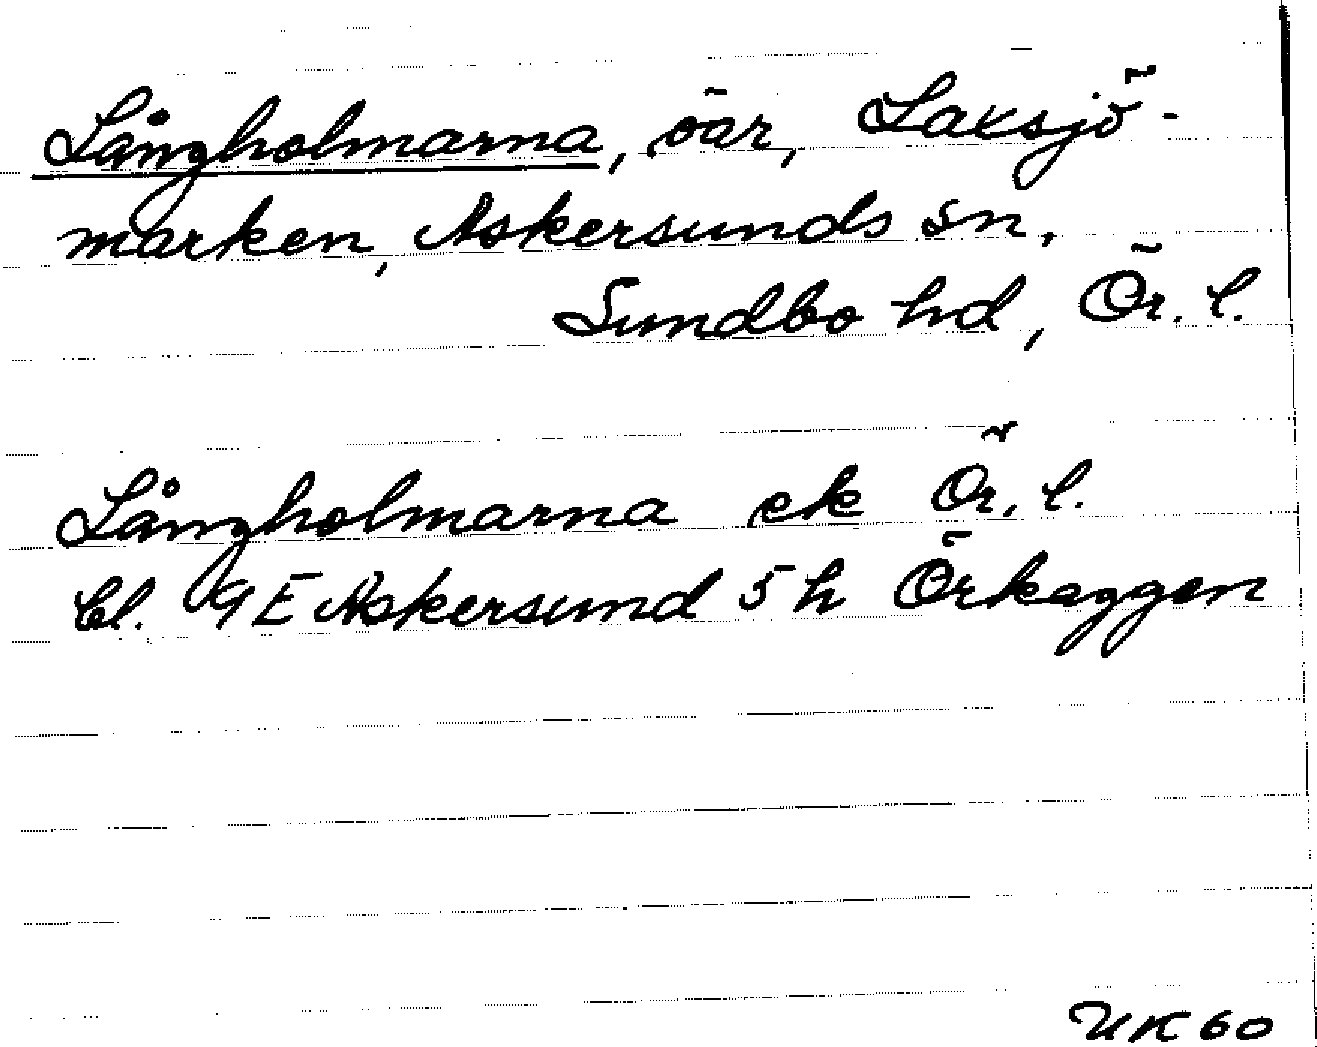 Långholmarna, öar, Laxsjö-
marken, Askersunds sn,
Sundbo hd, Ör. l.
Långholmarna ek Ör. l.
bl. 9 E Askersund 5 h Örkaggen
UK 60